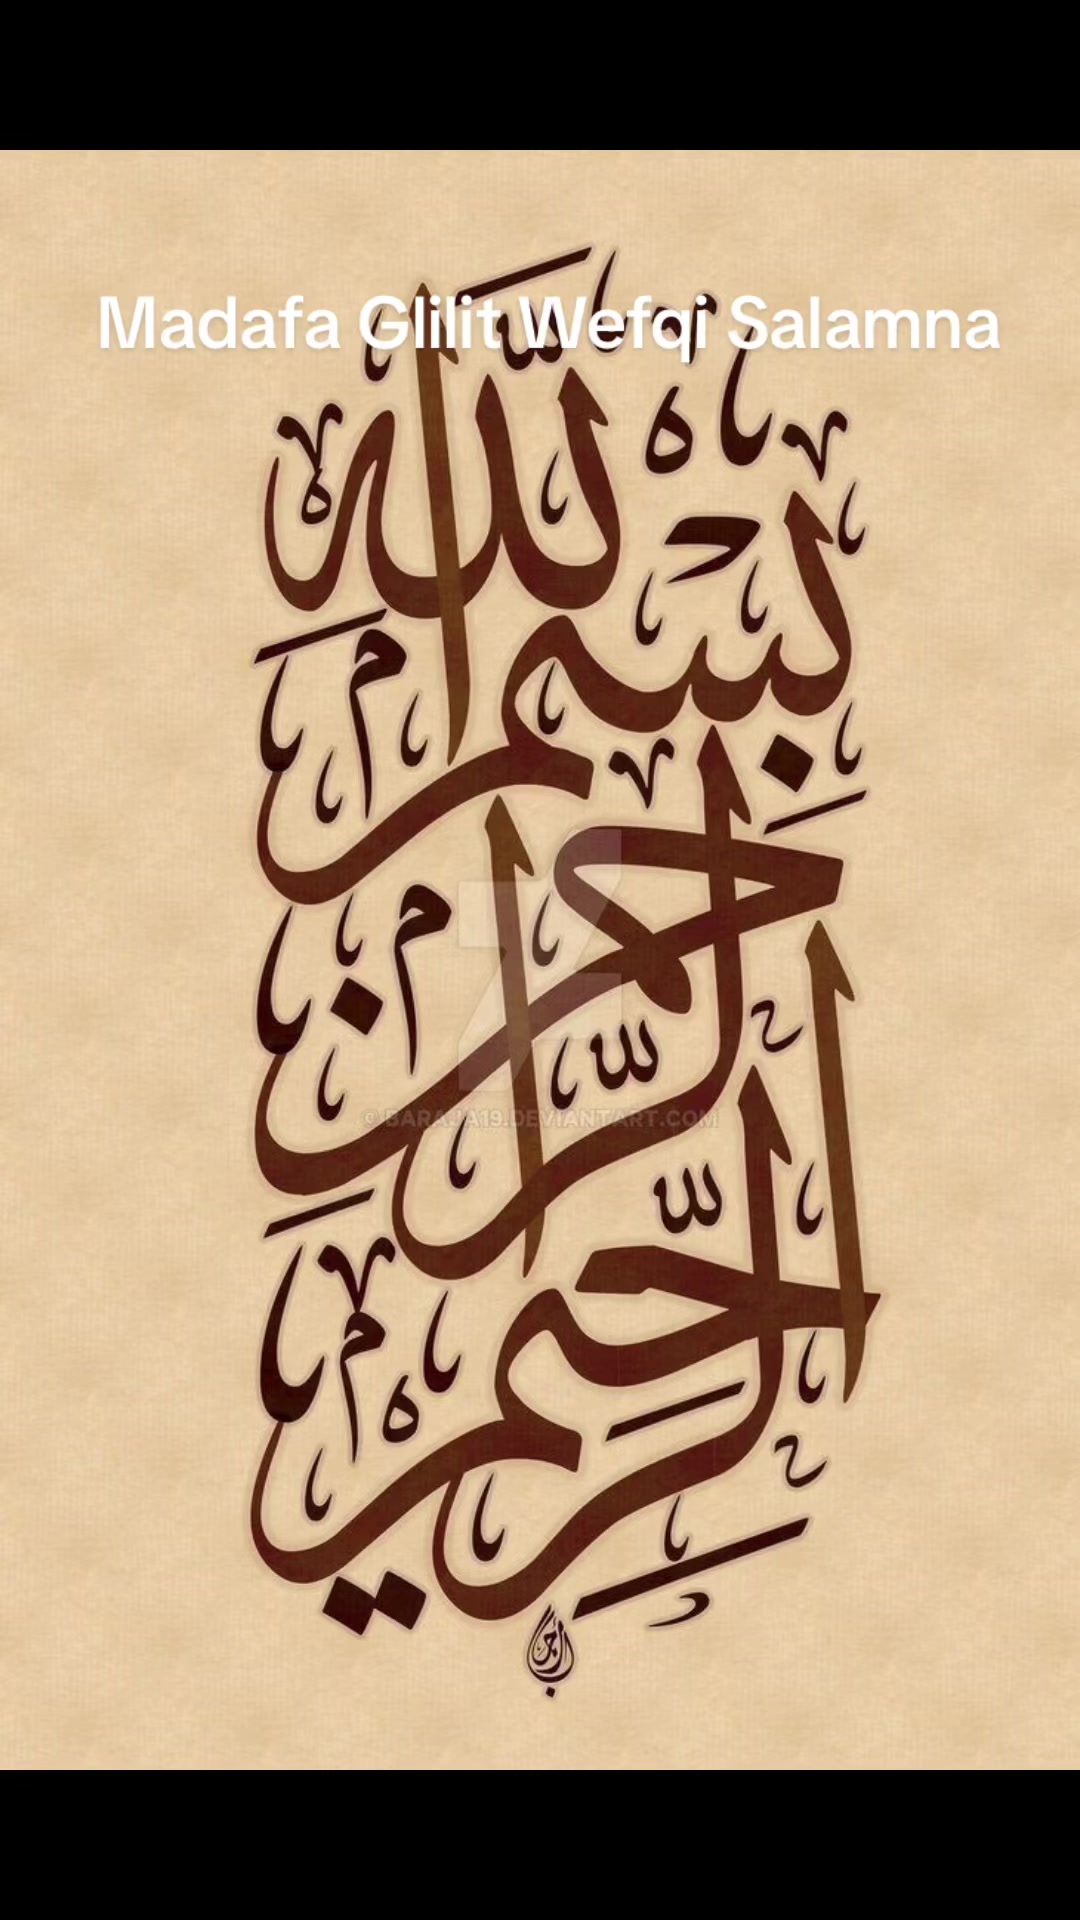 Madafa Glilit Wefqi Salamna
بِسْمِ اللَّهِ
الرَّحْمَنِ
الرَّحِيمِ
© BARAJA19.DEVIANTART.COM